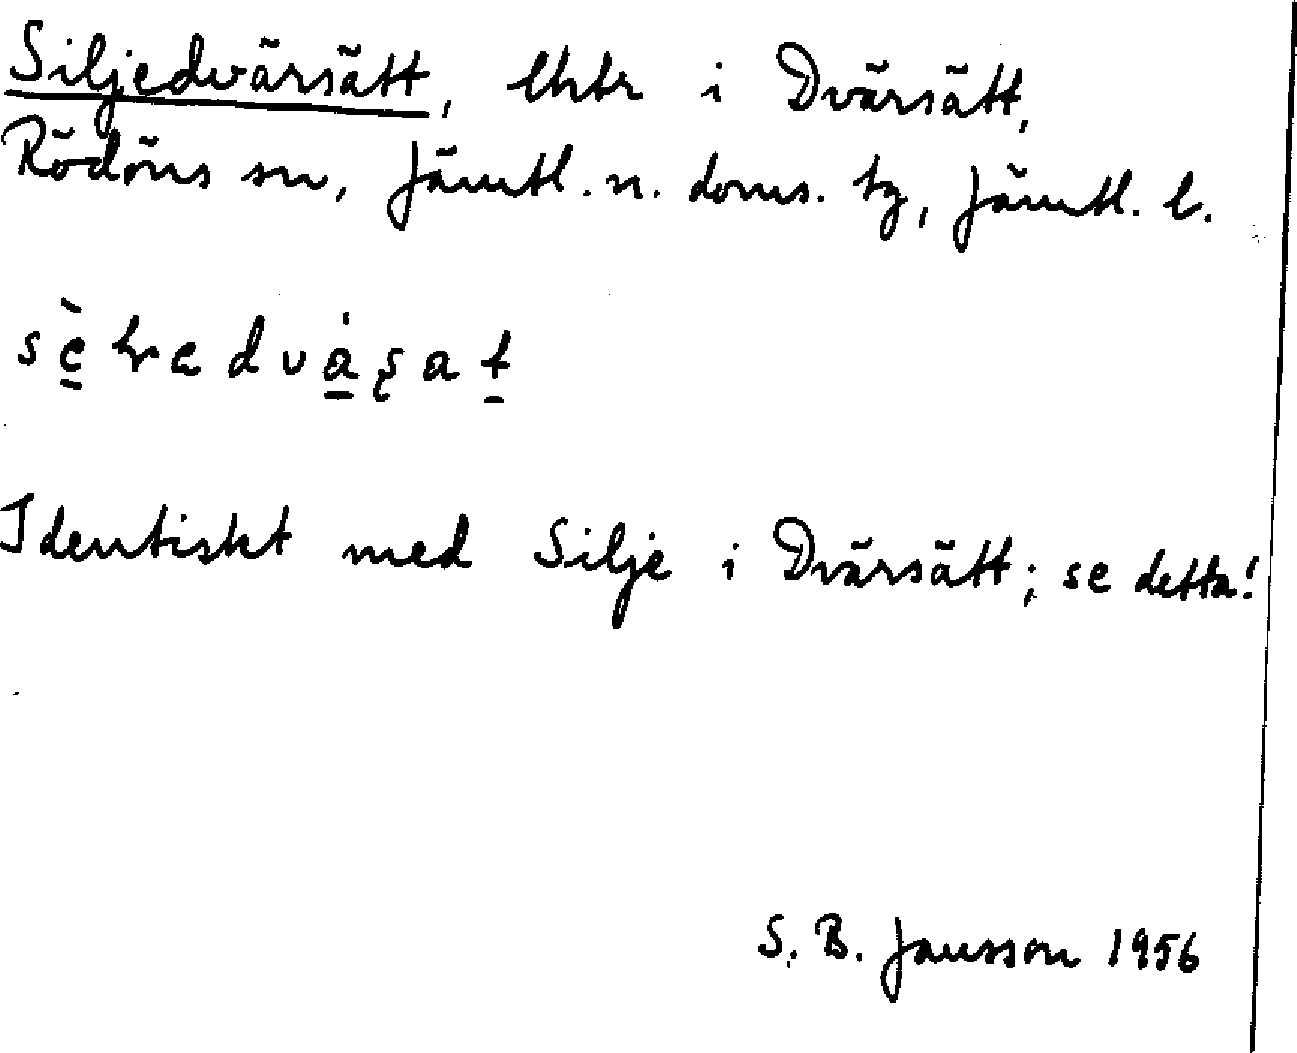 Siljedvärsätt, i Dvärsätt,
Rödöns sn, Jämtl. n. doms. tg, Jämtl. l.
Identiskt med Silje i Dvärsätt; se detta!
S. B. Jansson 1956